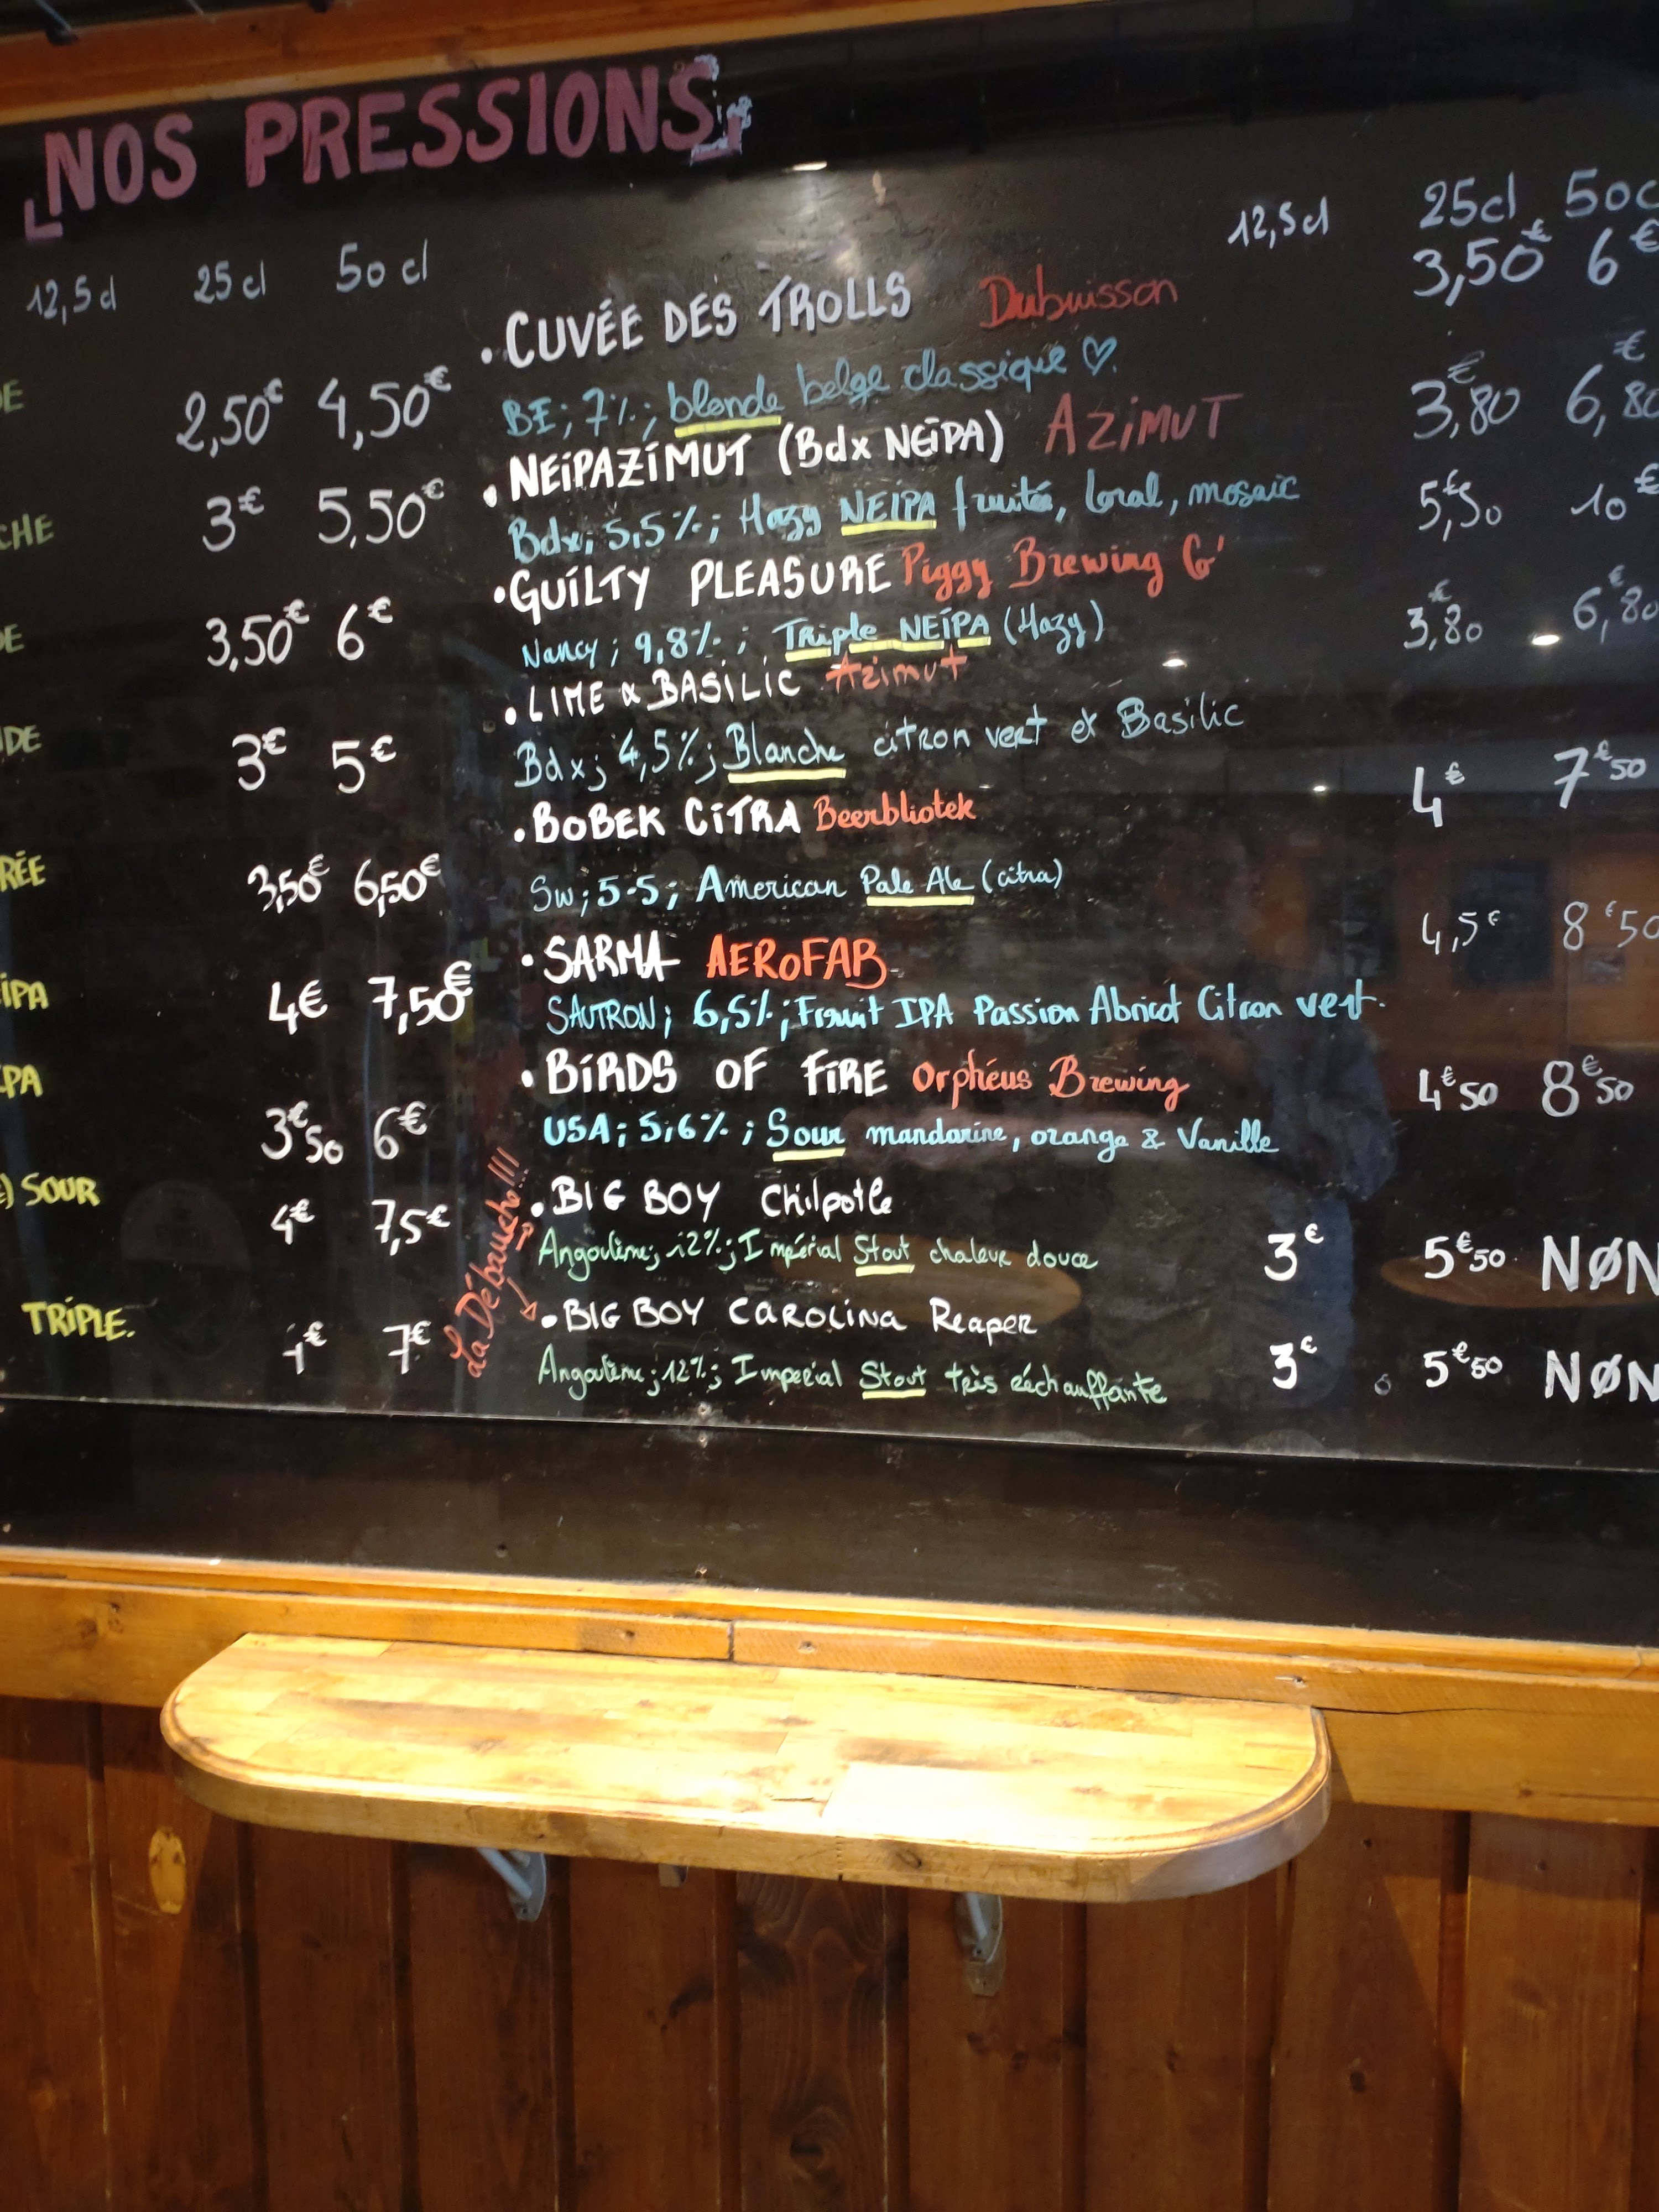 NOS PRESSIONS
12,5 cl 25 cl 50 cl
2,50€ 4,50€
CHE 3€ 5,50€
3,50€ 6€
DE 3€ 5€
RÉE 3,50€ 6,50€
ÏPA 4€ 7,50€
PA 3€50 6€
) SOUR 4€ 7,5€
TRIPLE. 7€
12,5 cl 25cl 50c
• CUVÉE DES TROLLS Dubuisson 3,50€ 6€
BE; 7%; blonde belge classique ♡.
• NEÏPAZÏMUT (Bdx NEÏPA) AZÏMUT 3,80€ 6,80€
Bdx; 5,5%; Hazy NEIPA fruitée, loral, mosaic
• GUÏLTY PLEASURE Piggy Brewing C° 5,50€ 10€
Nancy; 9,8%; Triple NEÏPA (Hazy)
• LIME & BASILIC Azimut 3,80€ 6,80€
Bdx; 4,5%; Blanche citron vert et Basilic
• BOBEK CÏTRA Beerbliotek 4€ 7€50
Sw; 5.5; American Pale Ale (citra)
• SARMA AEROFAB 4,5€ 8€50
SAUTRON; 6,5%; Fruit IPA Passion Abricot Citron vert.
• BÏRDS OF FÏRE Orphéus Brewing 4€50 8€50
USA; 5,6%; Sour mandarine, orange & Vanille
La Débauche!!!
• BIG BOY Chilpotle
Angoulême; 12%; Impérial Stout chaleur douce 3€ 5€50 NØN
• BIG BOY CAROLINA Reaper
Angoulême; 12%; Imperial Stout très réchauffante 3€ 5€50 NØN